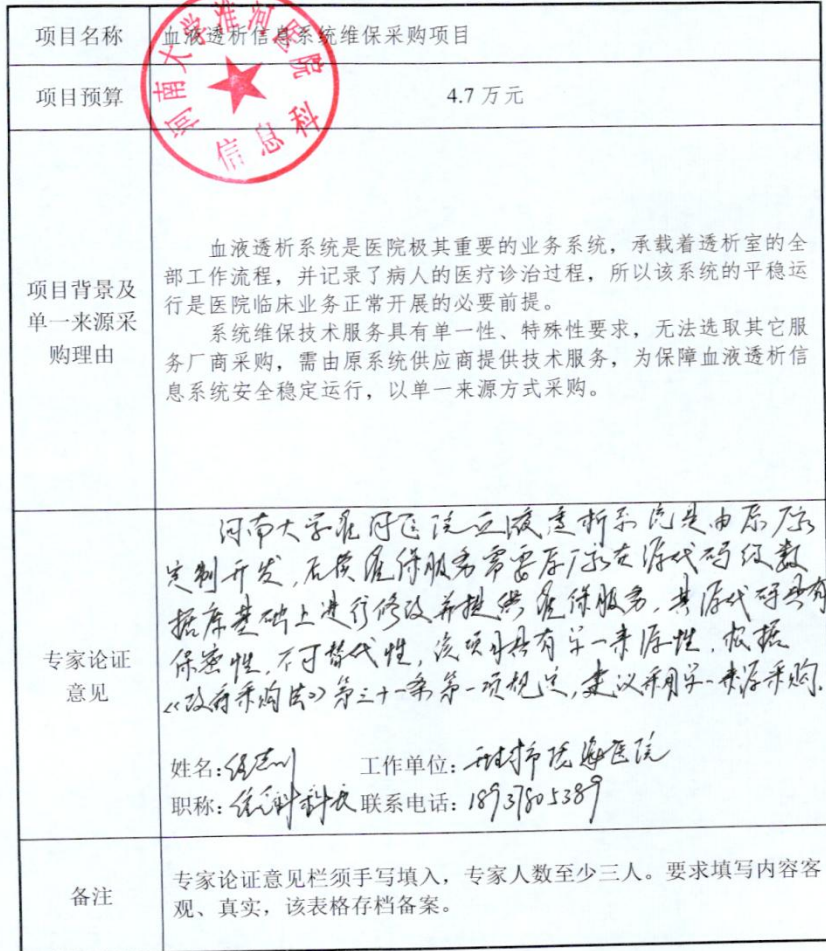 项目名称
血液透析信息系统维保采购项目
河南大学淮河医院
信息科
项目预算
4.7 万元
项目背景及
单一来源采
购理由
血液透析系统是医院极其重要的业务系统，承载着透析室的全
部工作流程，并记录了病人的医疗诊治过程，所以该系统的平稳运
行是医院临床业务正常开展的必要前提。
系统维保技术服务具有单一性、特殊性要求，无法选取其它服
务厂商采购，需由原系统供应商提供技术服务，为保障血液透析信
息系统安全稳定运行，以单一来源方式采购。
专家论证
意见
河南大学淮河医院血液透析系统是由原厂家
定制开发，后续维保服务需要原厂家在源代码级数
据库基础上进行修改并提供维保服务，其源代码具有
保密性，不可替代性，该项目具有单一来源性，根据
《政府采购法》第三十一条第一项规定，建议采用单一来源采购.
姓名： 工作单位：开封市 医院
职称： 科科长 联系电话：18937805389
备注
专家论证意见栏须手写填入，专家人数至少三人。要求填写内容客
观、真实，该表格存档备案。